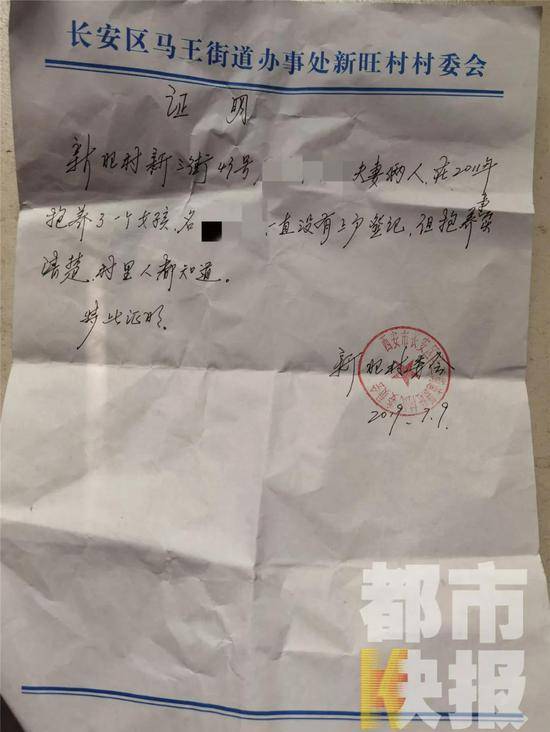 长安区马王街道办事处新旺村村委会
证明
新旺村新三街43号, 夫妻俩人,在2011年
抱养了一个女孩,名 一直没有上户登记,但抱养事实
清楚,村里人都知道。
特此证明。
新旺村委会
2019.7.9.
都市
快报